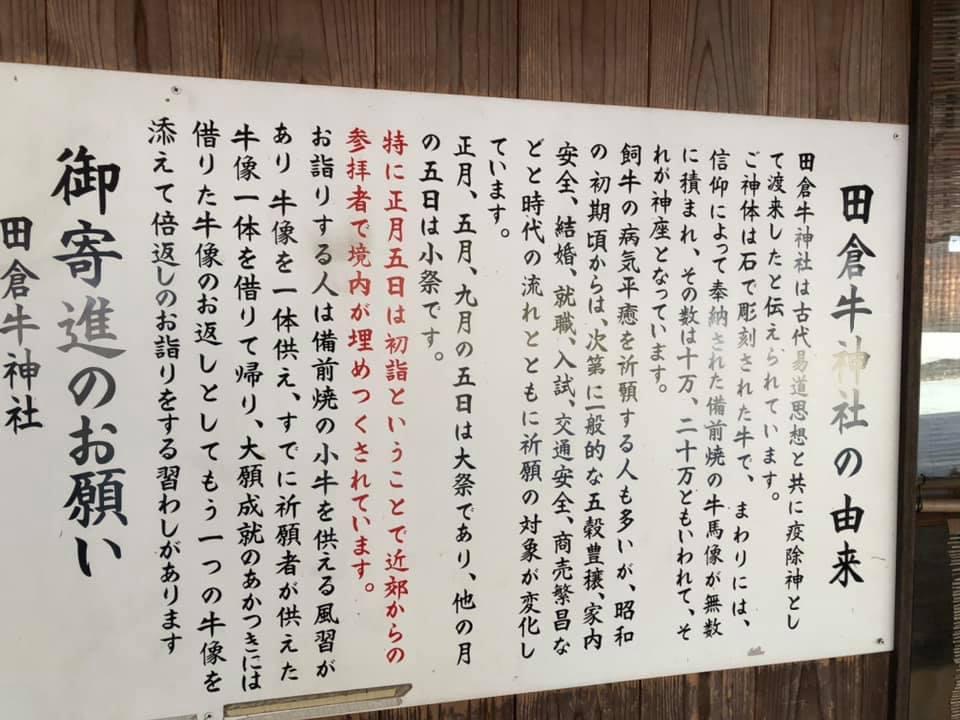 田倉牛神社の由来
田倉牛神社は古代易道思想と共に疫除神とし
て渡来したと伝えられています。
ご神体は石で彫刻された牛で、まわりには、
信仰によって奉納された備前焼の牛馬像が無数
に積まれ、その数は十万、二十万ともいわれて、そ
れが神座となっています。
飼牛の病気平癒を祈願する人も多いが、昭和
の初期頃からは、次第に一般的な五穀豊穣、家内
安全、結婚、就職、入試、交通安全、商売繁昌な
どと時代の流れとともに祈願の対象が変化し
ています。
正月、五月、九月の五日は大祭であり、他の月
の五日は小祭です。
特に正月五日は初詣ということで近郊からの
参拝者で境内が埋めつくされています。
お詣りする人は備前焼の小牛を供える風習が
あり 牛像を一体供え、すでに祈願者が供えた
牛像一体を借りて帰り、大願成就のあかつきには
借りた牛像のお返しとしてもう一つの牛像を
添えて倍返しのお詣りをする習わしがあります
御寄進のお願い
田倉牛神社